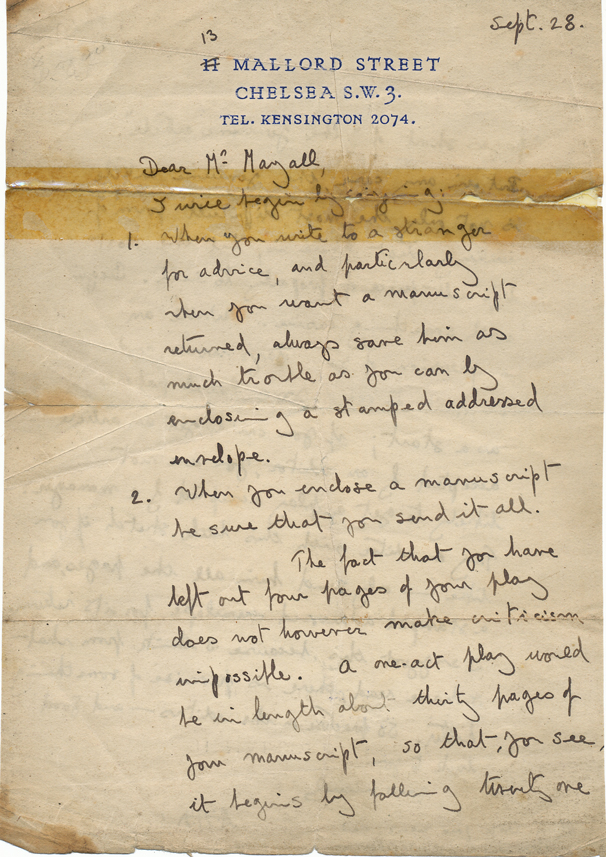 Sept. 28.
13
11 MALLORD STREET
CHELSEA S.W. 3.
TEL. KENSINGTON 2074.
Dear Mr Mayall,
I will begin by saying:
1. When you write to a stranger
for advice, and particularly
when you want a manuscript
returned, always save him as
much trouble as you can by
enclosing a stamped addressed
envelope.
2. When you enclose a manuscript
be sure that you send it all.
The fact that you have
left out four pages of your play
does not however make criticism
impossible. A one-act play would
be in length about thirty pages of
your manuscript, so that, you see,
it begins by falling twenty one